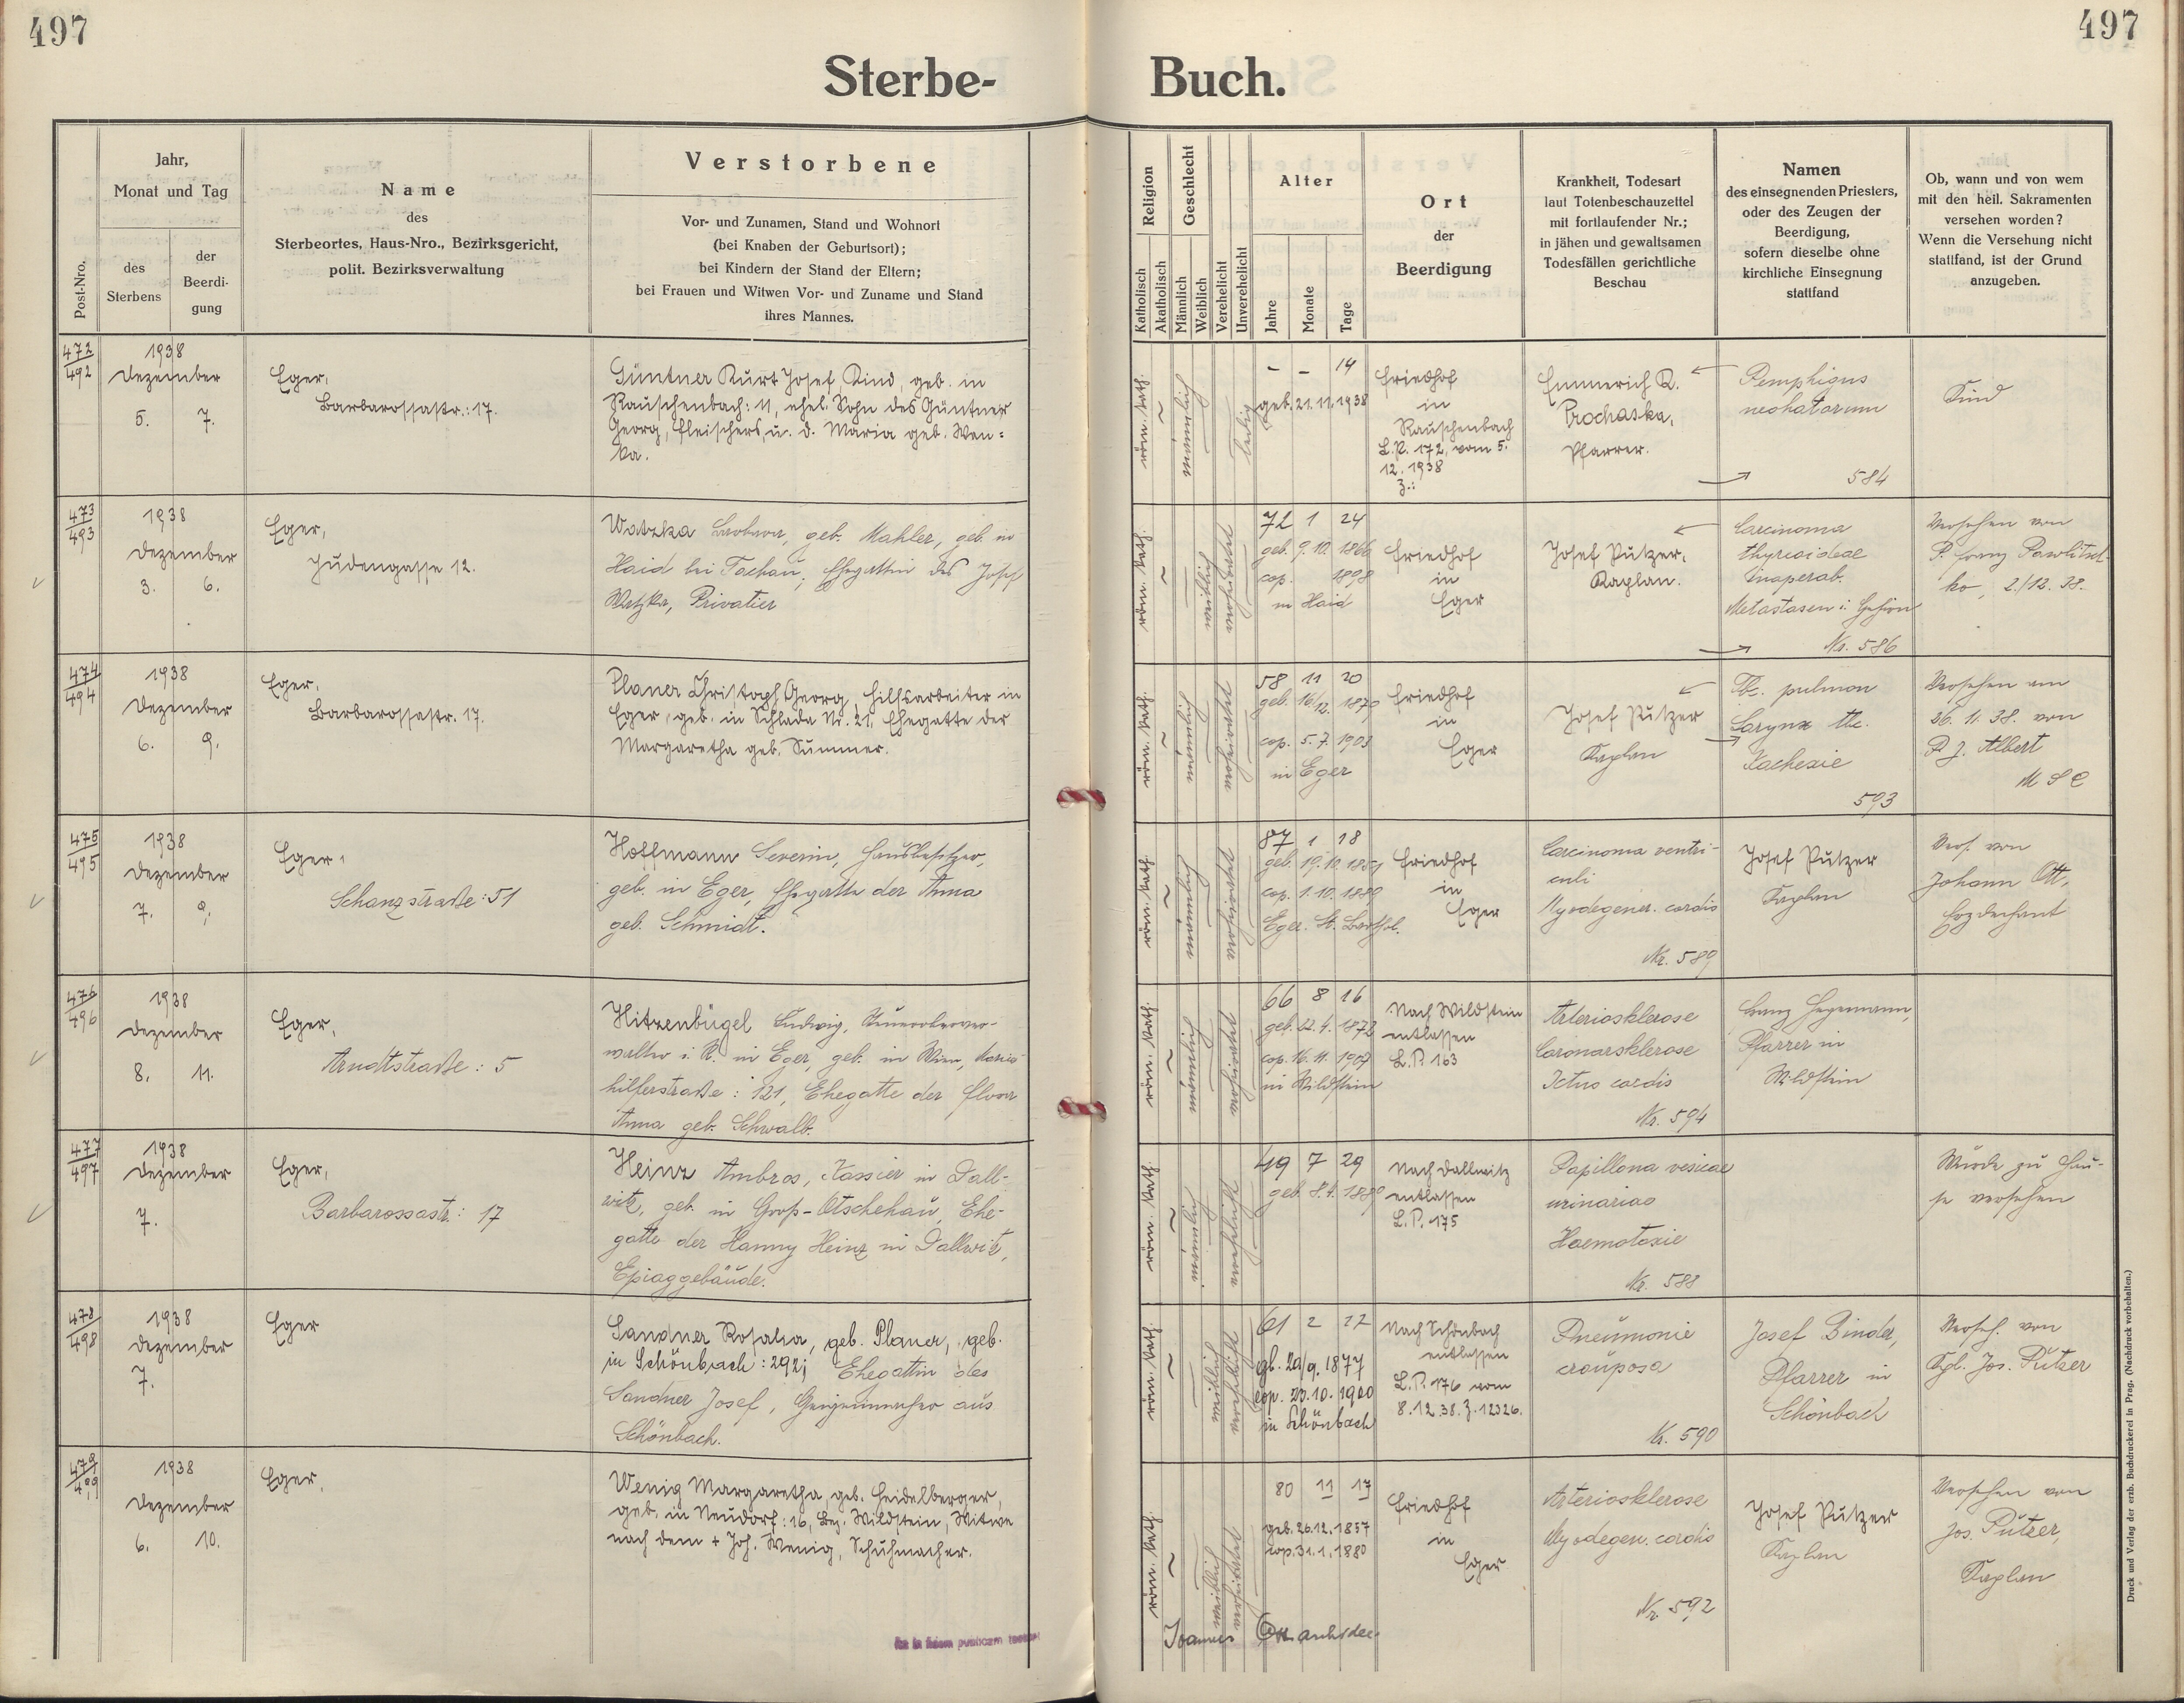 497
497
Sterbe-
Buch.
Post-Nro.
Jahr,
Monat und Tag
des
Sterbens
der
Beerdi-
gung
Name
des
Sterbeortes, Haus-Nro., Bezirksgericht,
polit. Bezirksverwaltung
Verstorbene
Vor- und Zunamen, Stand und Wohnort
(bei Knaben der Geburtsort);
bei Kindern der Stand der Eltern;
bei Frauen und Witwen Vor- und Zuname und Stand
ihres Mannes.
Religion
Katholisch
Akatholisch
Geschlecht
Männlich
Weiblich
Verehelicht
Unverehelicht
Alter
Jahre
Monate
Tage
Ort
der
Beerdigung
Krankheit, Todesart
laut Totenbeschauzettel
mit fortlaufender Nr.;
in jähen und gewaltsamen
Todesfällen gerichtliche
Beschau
Namen
des einsegnenden Priesters,
oder des Zeugen der
Beerdigung,
sofern dieselbe ohne
kirchliche Einsegnung
stattfand
Ob, wann und von wem
mit den heil. Sakramenten
versehen worden?
Wenn die Versehung nicht
stattfand, ist der Grund
anzugeben.
472
492
1938
Dezember
5. 7.
Eger,
Barbarossastr.: 17.
Güntner Kurt Josef, Kind, geb. in
Rauschenbach: 11, ehel. Sohn des Güntner
Georg, Fleischers, u. d. Maria geb. Wen-
ka.
röm. kath.
männlich
ledig
- - 14
geb. 21. 11. 1938
Friedhof
in
Rauschenbach
L.P. 172, vom 5.
12. 1938
Z.:
Emmerich R.
Prochaska,
Pfarrer.
Pemphigus
neonatorum
584
Kind
473
493
1938
Dezember
3. 6.
Eger,
Judengasse 12.
Watzka Barbara, geb. Mahler, geb. in
Haid bei Tachau, Ehegattin des Josef
Watzka, Privatier
röm. kath.
weiblich
verehelicht
72 1 24
geb. 9. 10. 1866
cop. 1898
in Haid
Friedhof
in
Eger
Josef Pützer,
Kaplan.
Carcinoma
thyreoideae
inoperab.
Metastasen i. Gehirn
Nr. 586
Versehen von
P. Franz Pawlitsch-
ko, 2./12. 38.
474
494
1938
Dezember
6. 9.
Eger,
Barbarossastr. 17.
Planer Christoph Georg, Hilfsarbeiter in
Eger, geb. in Schlada Nr. 21, Ehegatte der
Margaretha geb. Summer.
röm. kath.
männlich
verehelicht
58 11 20
geb. 16/12. 1879
cop. 5. 7. 1903
in Eger
Friedhof
in
Eger
Josef Pützer
Kaplan
Tbc. pulmon
Larynx tbc.
Kachexie
593
Versehen am
26. 11. 38. von
P. J. Albert
M S C
475
495
1938
Dezember
7. 9.
Eger,
Schanzstraße: 51
Hoffmann Severin, Hausbesitzer,
geb. in Eger, Ehegatte der Anna
geb. Schmidt.
röm. kath.
männlich
verehelicht
87 1 18
geb. 19. 10. 1851
cop. 1. 10. 1889
Eger. St. Barthol.
Friedhof
in
Eger
Carcinoma ventri-
culi
Myodegener. cordis
Nr. 589
Josef Pützer
Kaplan
Vers. von
Johann Ott,
Erzdechant
476
496
1938
Dezember
8. 11.
Eger,
Arndtstraße: 5
Hitzenbügel Ludwig, Steueroberver-
walter i. R. in Eger, geb. in Wien, Maria-
hilferstraße: 121, Ehegatte der Flora
Anna geb. Schwalb.
röm. kath.
männlich
verehelicht
66 8 16
geb. 22. 4. 1872
cop. 16. 11. 1907
in Wildstein
Nach Wildstein
entlassen
L.P. 163
Arteriosklerose
Coronarsklerose
Ictus cordis
Nr. 594
Franz Hegemann,
Pfarrer in
Wildstein
477
497
1938
Dezember
7.
Eger,
Barbarossastr: 17
Heinz Ambros, Kassier in Dall-
witz, geb. in Groß-Otschehau, Ehe-
gatte der Hanny Heinz in Dallwitz,
Epiaggebäude.
röm. kath.
männlich
verehelicht
49 7 29
geb. 8. 4. 1889
Nach Dallwitz
entlassen
L.P. 175
Papilloma vesicae
urinariae
Haemotoxie
Nr. 588
Wurde zu Hau-
se versehen
478
498
1938
Dezember
7.
Eger
Sandner Rosalia, geb. Planer, geb.
in Schönbach: 292; Ehegattin des
Sandner Josef, Geigenmacher aus
Schönbach.
röm. kath.
weiblich
verehelicht
61 2
gb. 20/9. 1877
cop. 23. 10. 1900
in Schönbach
Nach Schönbach
entlassen
L.P. 176 vom
8. 12. 38. Z. 12326.
Pneumonie
crouposa
Nr. 590
Josef Binder,
Pfarrer in
Schönbach
Verseh. von
Kpl. Jos. Pützer
479
499
1938
Dezember
6. 10.
Eger,
Wenig Margaretha, geb. Heidelberger,
geb. in Neudorf: 16, Bez. Wildstein, Witwe
nach dem + Joh. Wenig, Schuhmacher.
röm. kath.
weiblich
verehelicht
80 11 17
geb. 26. 12. 1857
cop. 31. 1. 1880
Friedhof
in
Eger
Arteriosklerose
Myodegen. cordis
Nr. 592
Josef Pützer
Kaplan
Versehen von
Jos. Pützer,
Kaplan
Joannes Ott archidec
Druck und Verlag der erzb. Buchdruckerei in Prag. (Nachdruck vorbehalten.)